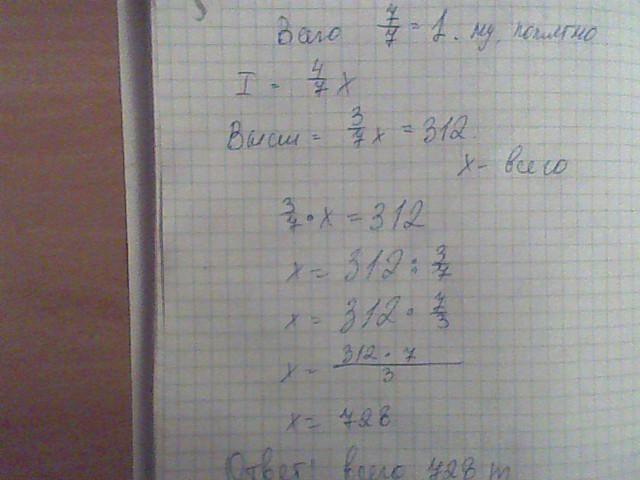 Всего 7/7 = 1. ну, понятно
I = 4/7 x
Высш = 3/7 x = 312.
x - всего
3/7 • x = 312
x = 312 : 3/7
x = 312 • 7/3
x = 312 • 7 / 3
x = 728
Ответ: всего 728 т